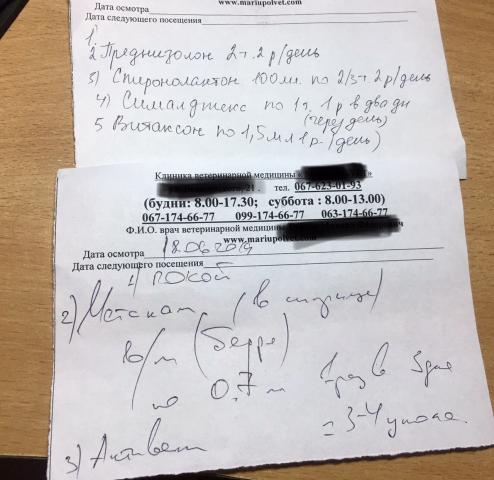 www.mariupolvet.com
Дата осмотра
Дата следующего посещения
1.
2 Преднизолон 2т. 2 р/день
3) Спиронолактон 100мг. по 2/3т 2р/день
4) Сималджекс по 1т. 1 р в два дн
(через день)
5 Витаксон по 1,5 мл 1 р./день)
Клиника ветеринарной медицины «
21. тел. 067-623-01-93
(будни: 8.00-17.30; суббота : 8.00-13.00)
067-174-66-77 099-174-66-77 063-174-66-77
Ф.И.О. врач ветеринарной медицины
www.mariupolvet.com
Дата осмотра 18.06.2019
Дата следующего посещения
1) ПОКОЙ
2) (в шприце)
в/м (бедро)
по 0.7 м 1 раз в 3 дня
= 3-4 укола.
3) Активет